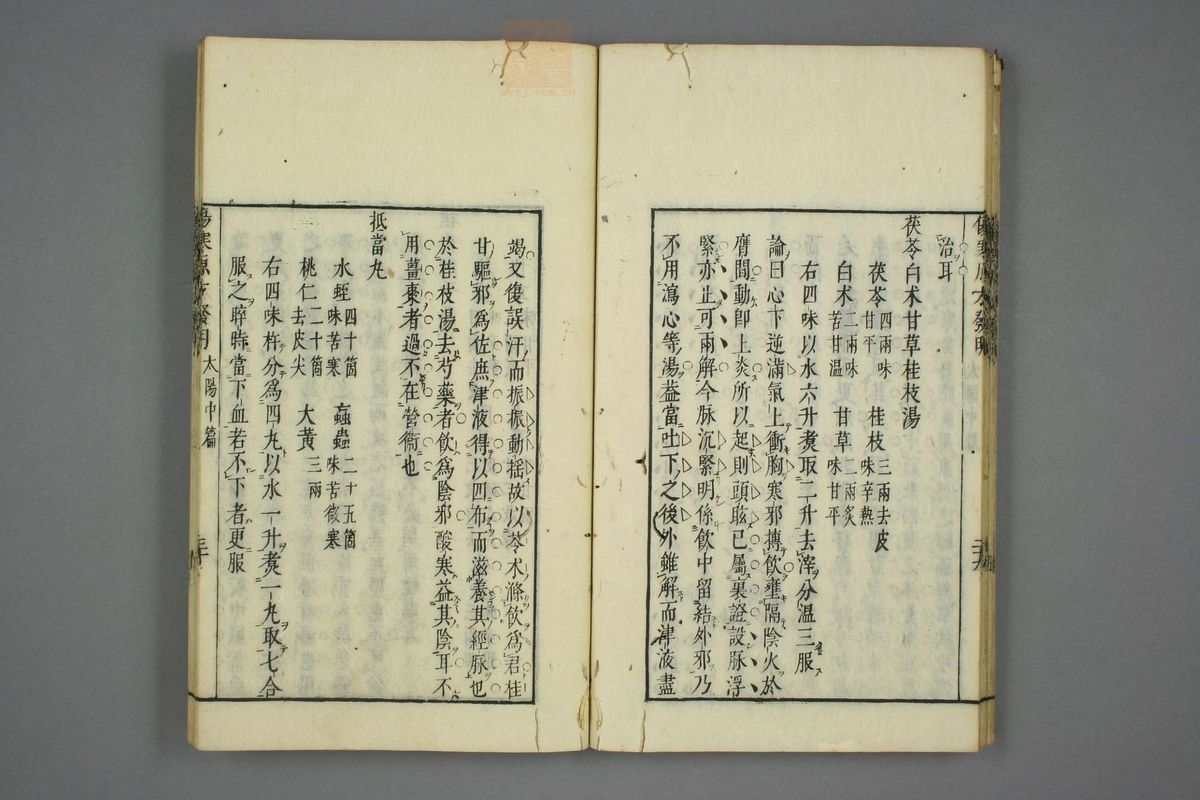 治耳
茯苓白术甘草桂枝湯
茯苓四兩味甘平 桂枝三兩去皮味辛熱
白术二兩味苦甘温 甘草二兩炙味甘平
右四味以水六升煑取二升去滓分温三服
論曰心下逆滿氣上衝胸寒邪搏飲壅隔陰火於
膺間動卽上炎所以起則頭眩已屬裏證設脉浮
緊亦止可兩解今脉沉緊明係飲中留結外邪乃
不用瀉心等湯葢當吐下之後外雖解而津液盡
竭又復誤汗而振振動搖故以苓术滌飲爲君桂
甘驅邪爲佐庶津液得以四布而滋養其經脉也
於桂枝湯去芍藥者飲爲陰邪酸寒益其陰耳不
用薑棗者過不在營衞也
抵當丸
水蛭四十箇味苦寒 蝱蟲二十五箇味苦微寒
桃仁二十箇去皮尖 大黃三兩
右四味杵分爲四丸以水一升煑一丸取七合
服之晬時當下血若不下者更服
太陽中篇
zysj.com.cn